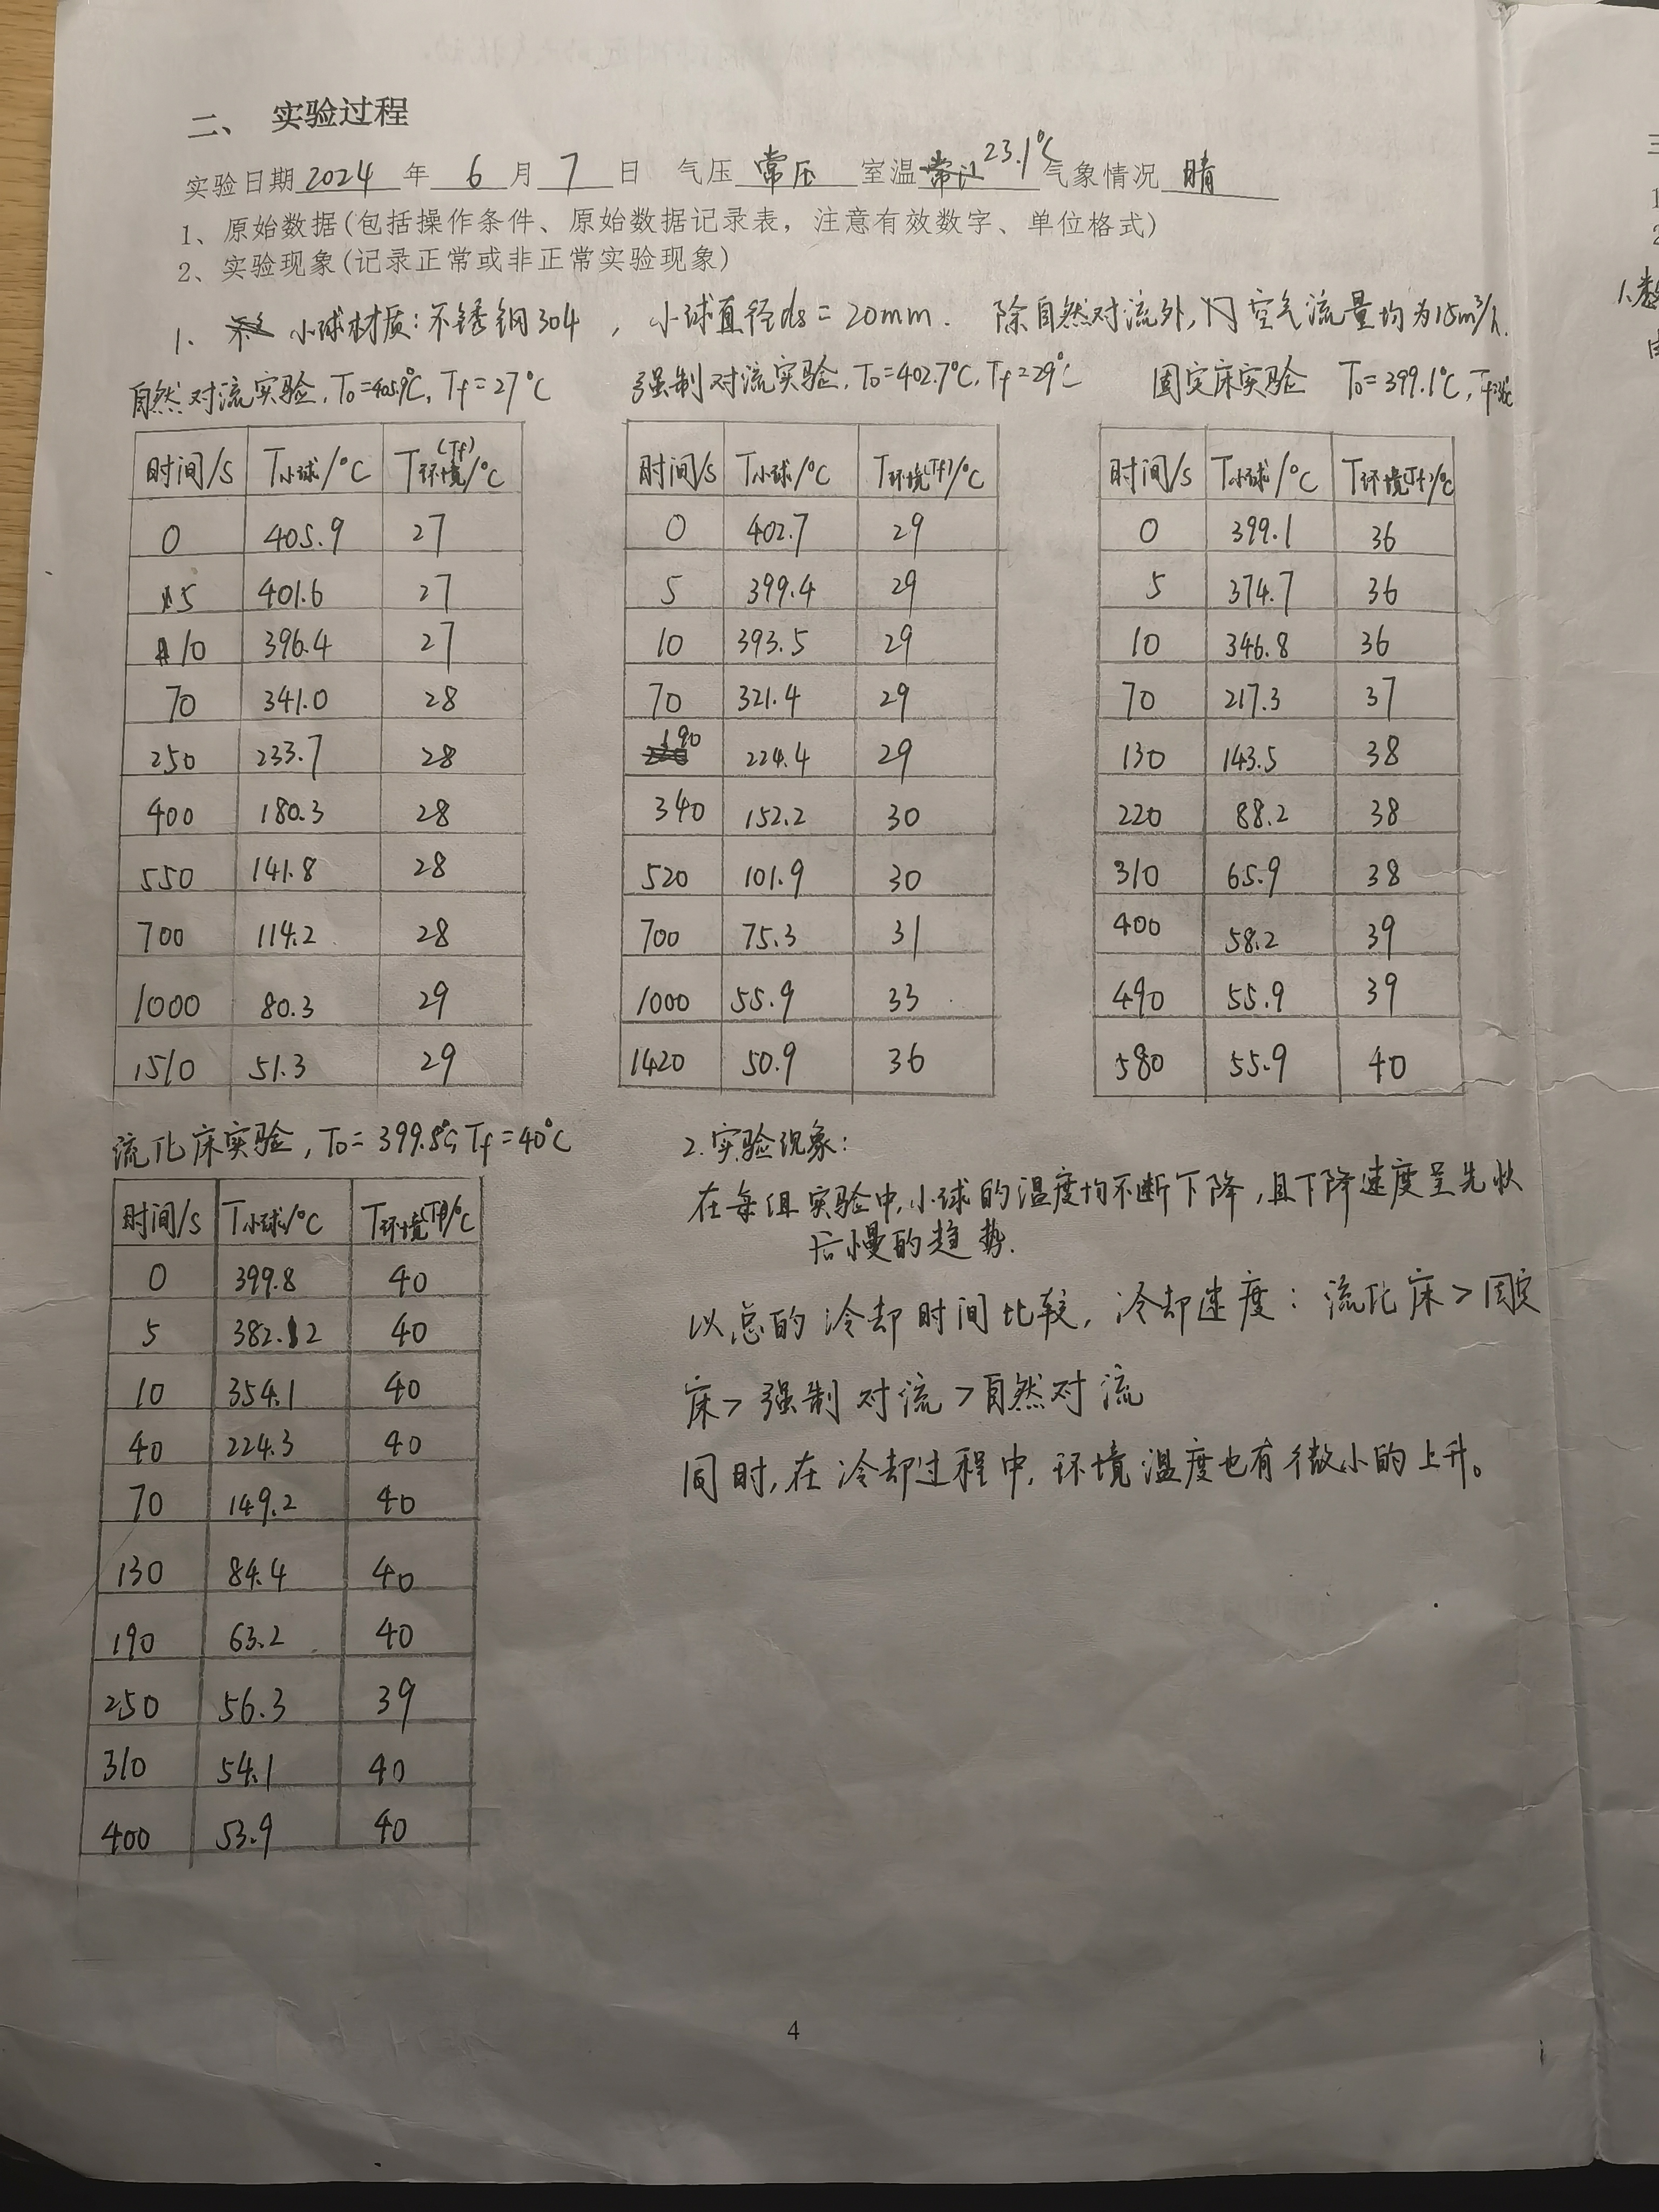 二、 实验过程
实验日期 2024 年 6 月 7 日 气压 常压 室温 23.1℃ 气象情况 晴
1、原始数据(包括操作条件、原始数据记录表，注意有效数字、单位格式)
2、实验现象(记录正常或非正常实验现象)
1. 小球材质:不锈钢304 ，小球直径ds=20mm. 除自然对流外, 空气流量均为15m³/h.
自然对流实验,T0=405.9℃, Tf=27℃
时间/s T小球/℃ T环境(Tf)/℃
0 405.9 27
5 401.6 27
10 396.4 27
70 341.0 28
250 233.7 28
400 180.3 28
550 141.8 28
700 114.2 28
1000 80.3 29
1510 51.3 29
强制对流实验,T0=402.7℃,Tf=29℃
时间/s T小球/℃ T环境(Tf)/℃
0 402.7 29
5 399.4 29
10 393.5 29
70 321.4 29
190 224.4 29
340 152.2 30
520 101.9 30
700 75.3 31
1000 55.9 33
1420 50.9 36
固定床实验 T0=399.1℃,
时间/s T小球/℃ T环境(Tf)/℃
0 399.1 36
5 374.7 36
10 346.8 36
70 217.3 37
130 143.5 38
220 88.2 38
310 65.9 38
400 58.2 39
490 55.9 39
580 55.9 40
流化床实验,T0=399.8℃, Tf=40℃
时间/s T小球/℃ T环境(Tf)/℃
0 399.8 40
5 382.2 40
10 354.1 40
40 224.3 40
70 149.2 40
130 84.4 40
190 63.2 40
250 56.3 39
310 54.1 40
400 53.9 40
2.实验现象:
在每组实验中,小球的温度均不断下降,且下降速度呈先快
后慢的趋势.
以总的冷却时间比较,冷却速度:流化床>固定
床>强制对流>自然对流
同时,在冷却过程中,环境温度也有微小的上升。
4